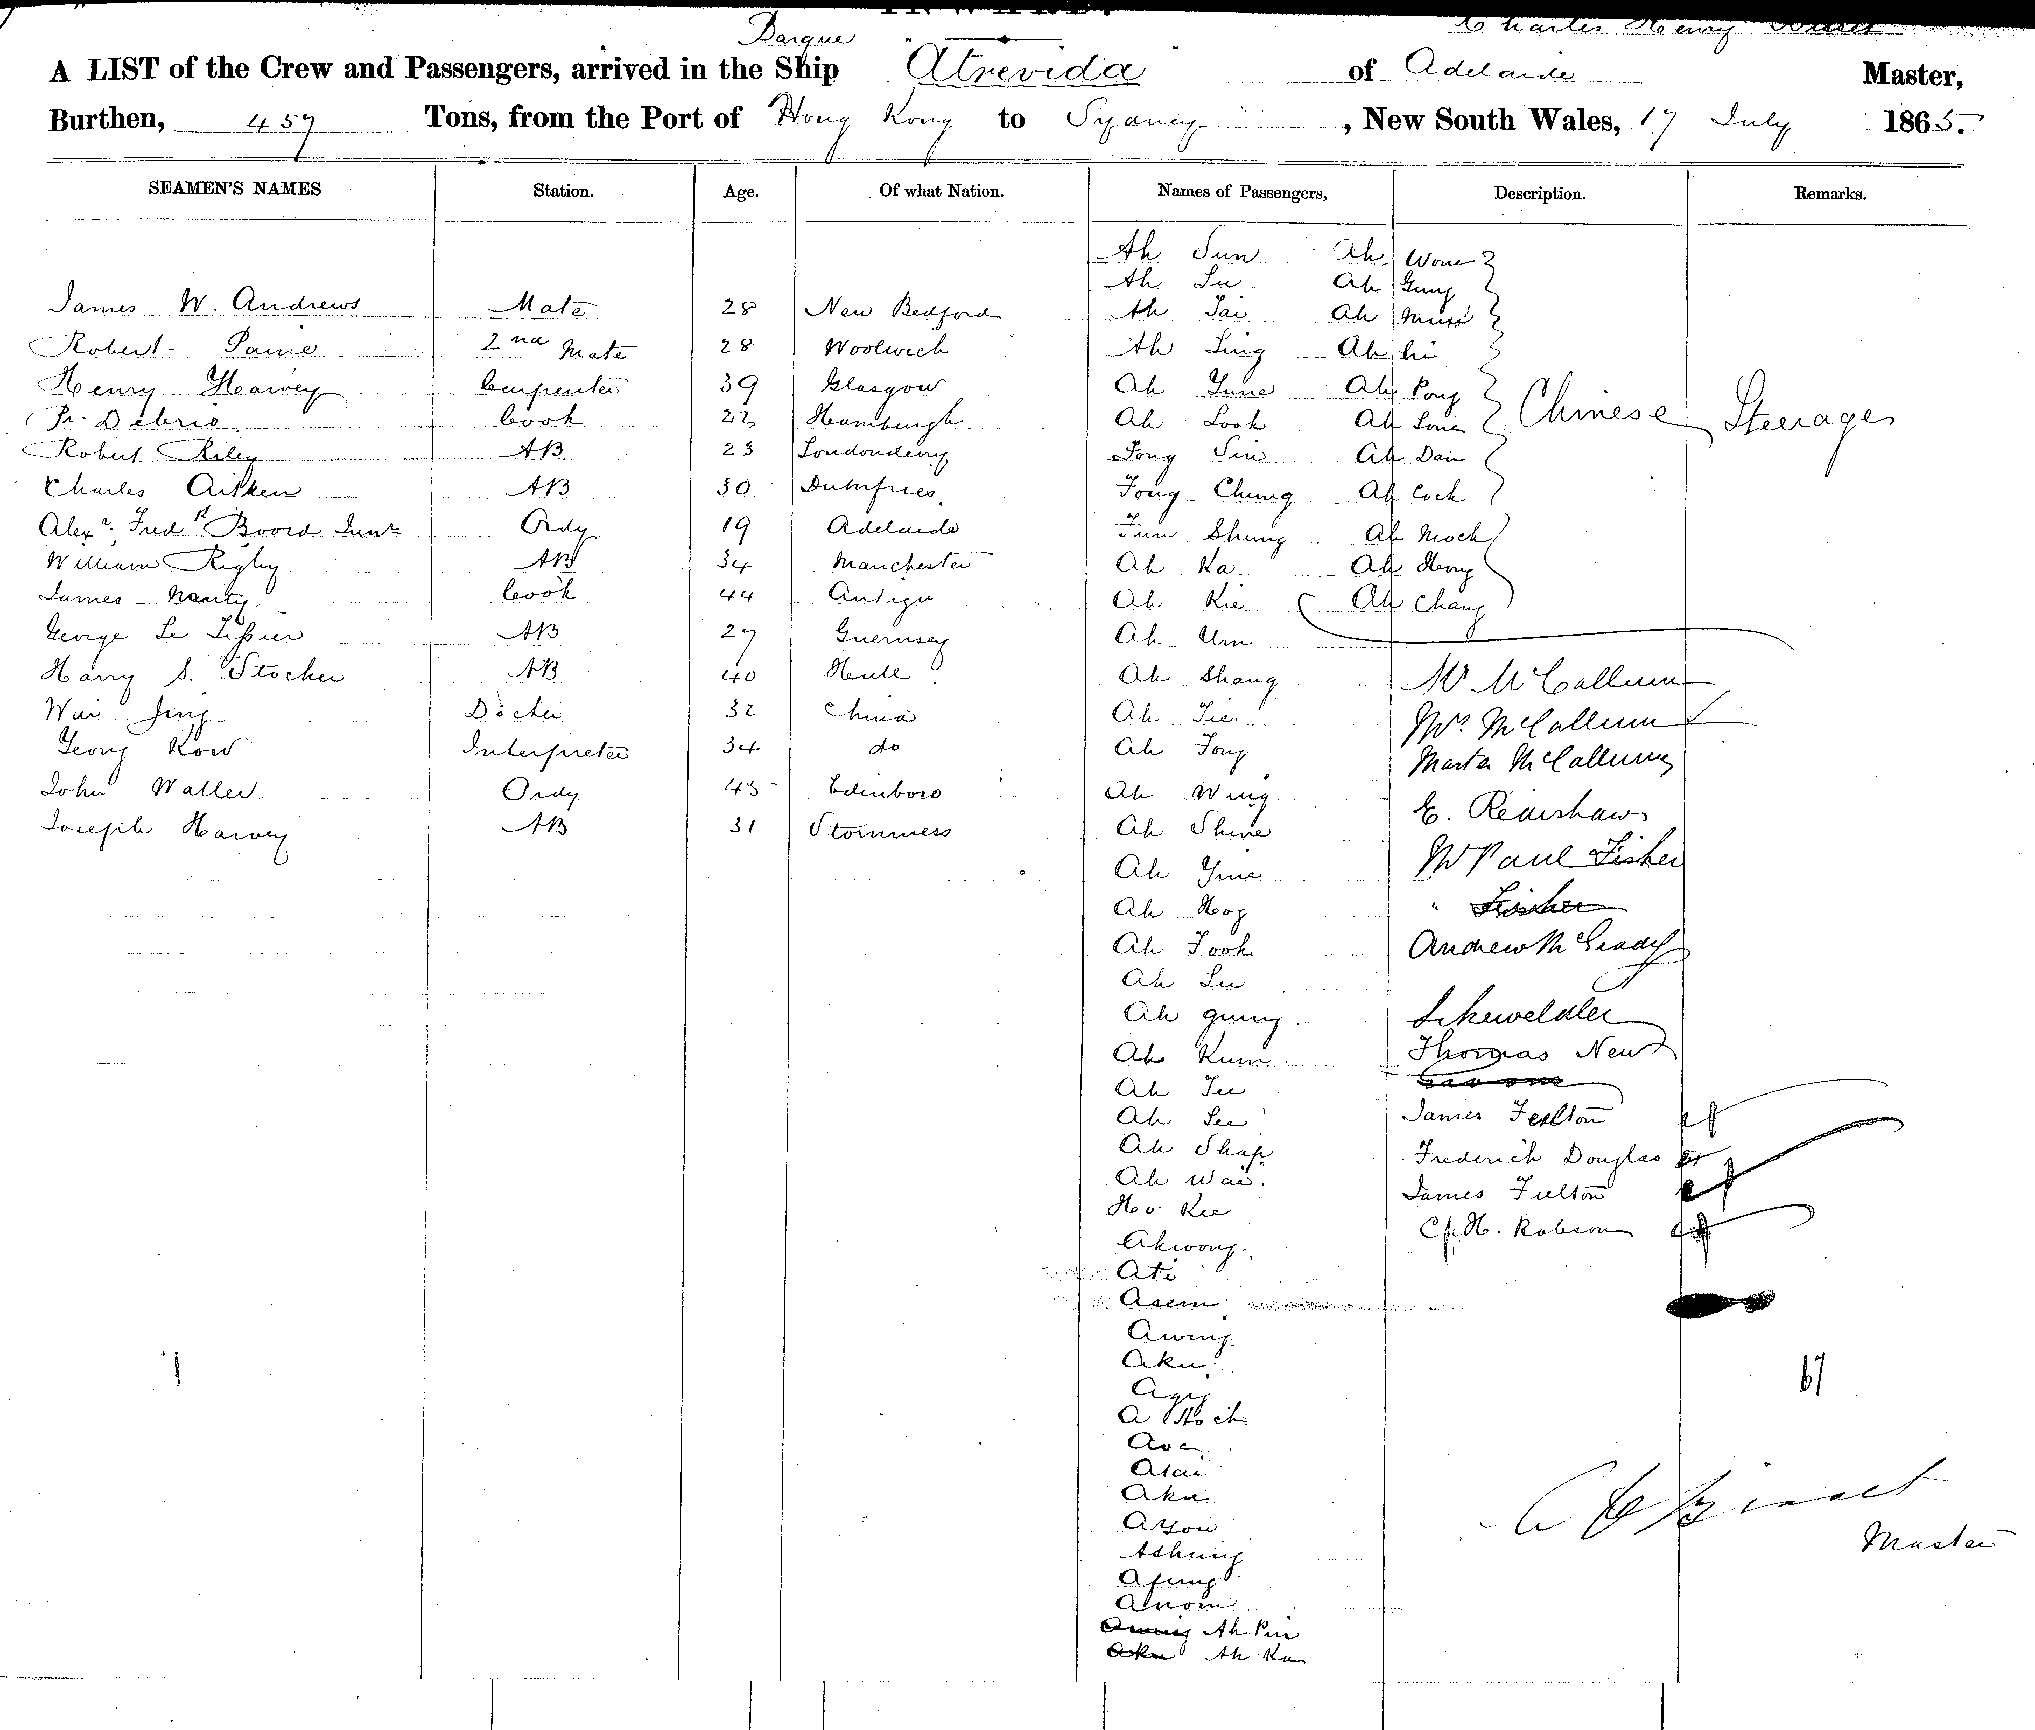 Charles Henry
Barque
A LIST of the Crew and Passengers, arrived in the Ship Atrevida of Adelaide Master,
Burthen, 457 Tons, from the Port of Hong Kong to Sydney, New South Wales, 17 July 1865.
SEAMEN'S NAMES Station. Age. Of what Nation. Names of Passengers, Description. Remarks.
Ah Sun Ah
Ah Su Ah Gung
James W. Andrews Mate 28 New Bedford Ah Tai Ah
Robert Paine 2nd Mate 28 Woolwich Ah Sing Ah
Henry Harvey Carpenter 39 Glasgow Ah June Ah Pong
Cook 22 Hamburgh Ah Look Ah Chinese Steerage
Robert Riley AB 23 Londonderry Fong Sin Ah Dain
Charles Aitken AB 30 Dumfries Fong Chung Ah Cock
Alexr. Fredk Boord Junr Ordy 19 Adelaide Shung Ah Mock
William Rigby AB 34 Manchester Ah Ka Ah Hong
James Cook 44 Antigu Ah Kie Ah Chang
George Le Tissier AB 27 Guernsey Ah Um
Harry S. Stocker AB 40 Hull Ah Shang Mr McCallum
Wai Jing Docter 32 China Ah Mrs McCallum
Yeong Kow Interpreter 34 do Ah Fong Master McCallum
John Waller Ordy 43 Edinboro Ah Wing E. Renshaw
Joseph Harvey AB 31 Stromness Ah Shine
Ah Mr Paul Fisher
Ah Hog " Fischer
Ah Fook Andrew McGrady
Ah Su
Ah gung
Ah Kum Thomas New
Ah
Ah See James Felton
Ah Shap Frederick Douglas
Ah Wai. James Fulton
Ho Kee C. H. Robson
Ahwong
Ati
Asem
Awing
Aku 67
A Hock
Atai
Aku
Ayou
Ashung
Afung
Anom
Awing Ah Pin
Aku Ah Ka
Master